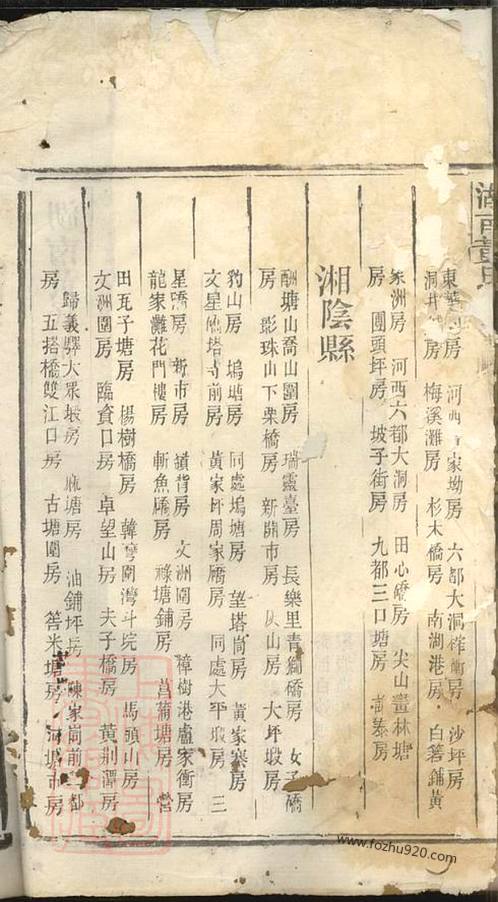 湖南
東房 河西家坳房 六都大洞榨房 沙坪房
洞井房 梅溪灘房 杉木橋房 南湖港房 白箬鋪黃
洲房 河西六都大洞房 田心房 尖山畫林塘
房 團頭坪房 坡子街房 九都三口塘房 泰房
湘陰縣
酬塘山喬山圍房 瑞靈臺房 長樂里青獅橋房 女子橋
房 影珠山下栗橋房 新開市房 山房 大坪塅房
豹山房 塢塘房 同處塢塘房 望塔房 黃家寨房
文星塔寺前房 黃家坪周家房 同處大平塅房 三
星房 新市房 背房 文洲圍房 樟樹港盧家衝房
龍家灘花門樓房 斬魚房 祿塘鋪房 菖蒲塘房 營
田瓦子塘房 楊樹橋房 韓灣圍灣斗垸房 馬頭山房
文洲圍房 臨資口房 卓望山房 夫子橋房 黃荊潭房
歸義驛大眾塅房 塘房 油鋪坪房 陳家前前都
房 五搭橋雙江口房 古塘圍房 筲米塘房 塘市房
www.fozhu920.com